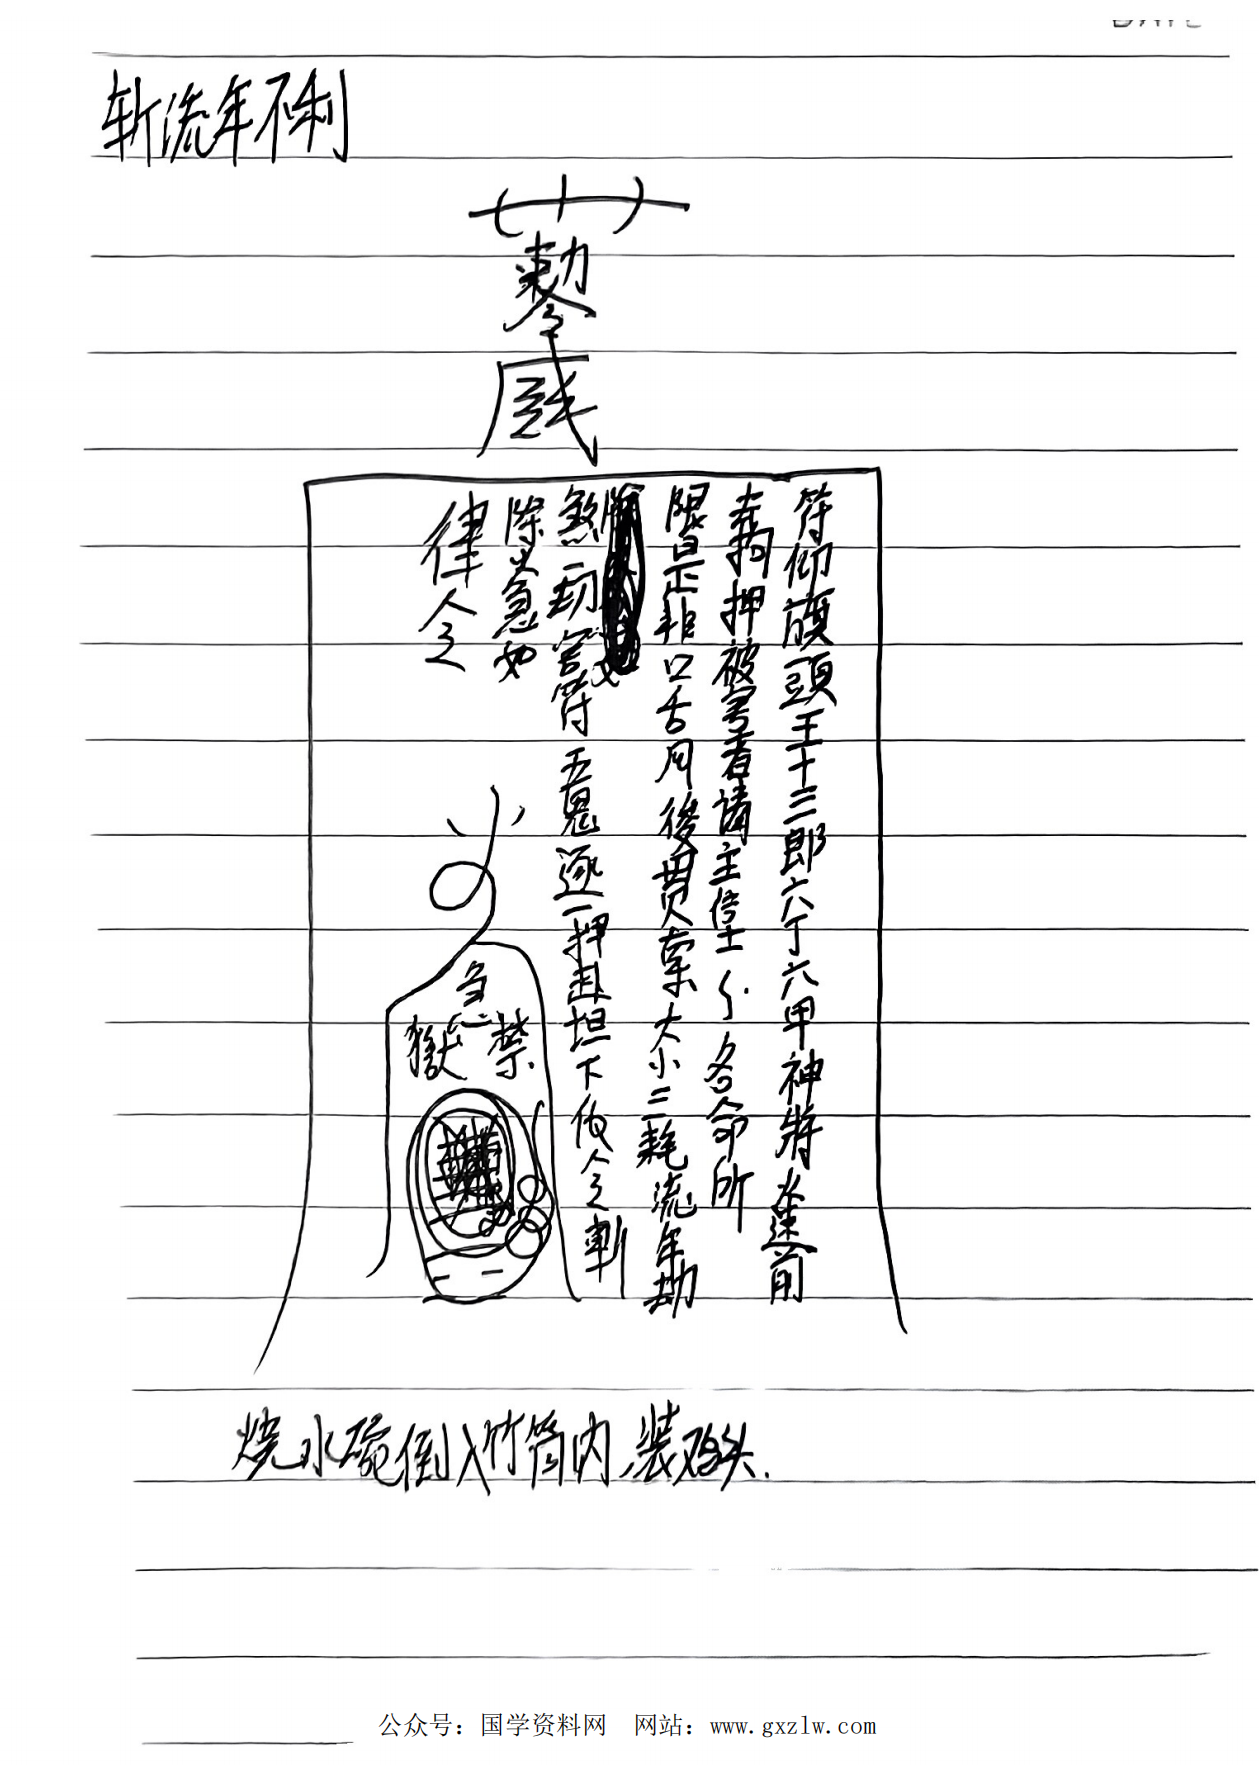 斩流年不利
勅令
符仰旗頭王十三郎六丁六甲神將火速前
去拘押被害者請主使士 各命所
限是非口舌月後贯索大小三耗流年劫
煞一切 符 五鬼逐一押赴坦下伏令斬
除火急如
律令
急
獄 禁
烧水碗倒入竹筒内,装鸡头.
公众号：国学资料网 网站：www.gxzlw.com